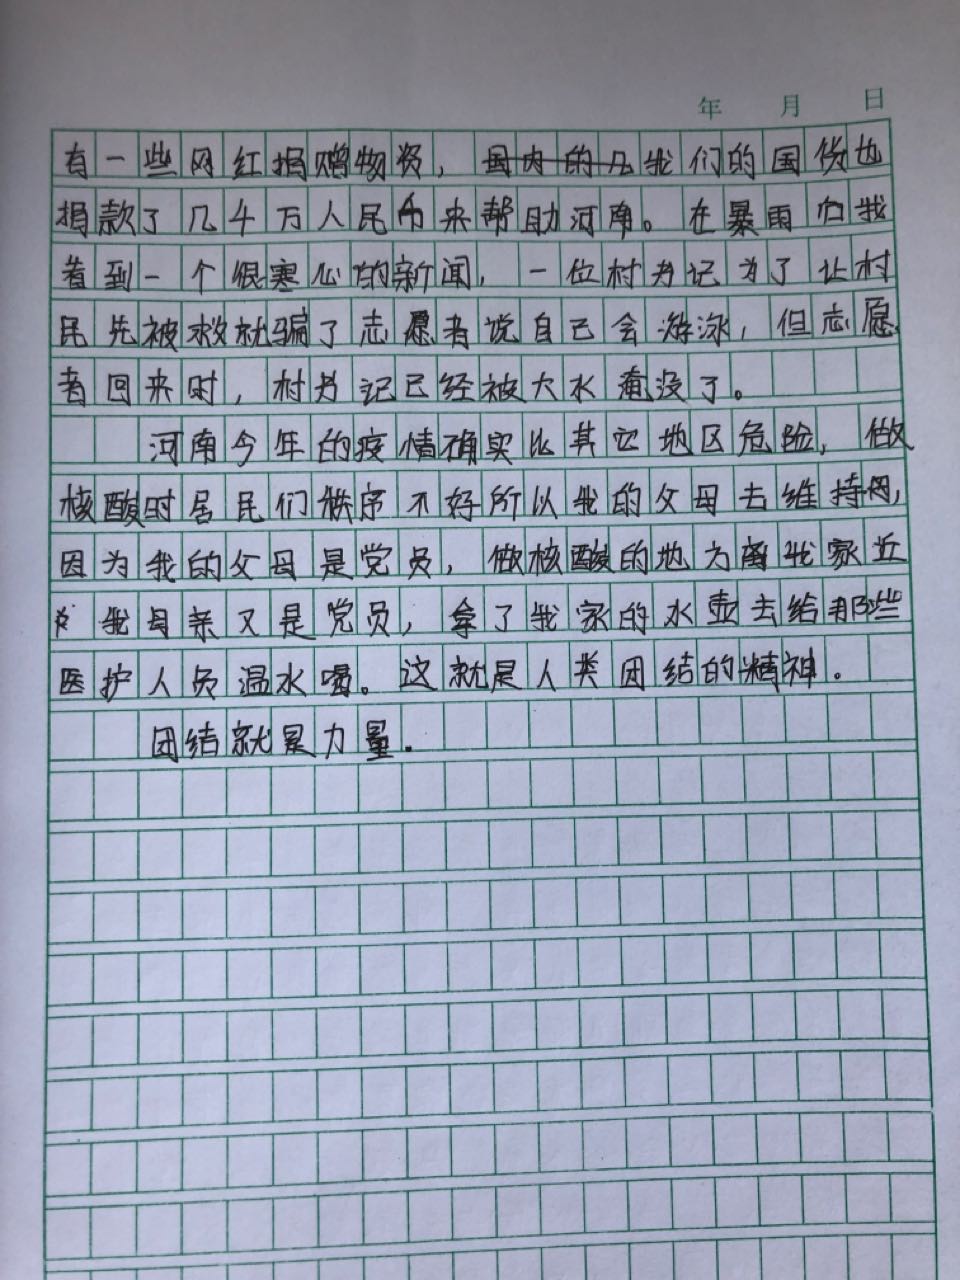 年 月 日
有一些网红捐赠物资，国内的几我们的国货也
捐款了几千万人民币来帮助河南。在暴雨内我
看到一个很寒心的新闻，一位村书记为了让村
民先被救就骗了志愿者说自己会游泳，但志愿
者回来时，村书记已经被大水淹没了。
河南今年的疫情确实比其它地区危险，做
核酸时居民们秩序不好所以我的父母去维持
因为我的父母是党员，做核酸的地方离我家近
我母亲又是党员，拿了我家的水壶去给那些
医护人员温水喝。这就是人类团结的精神。
团结就是力量。